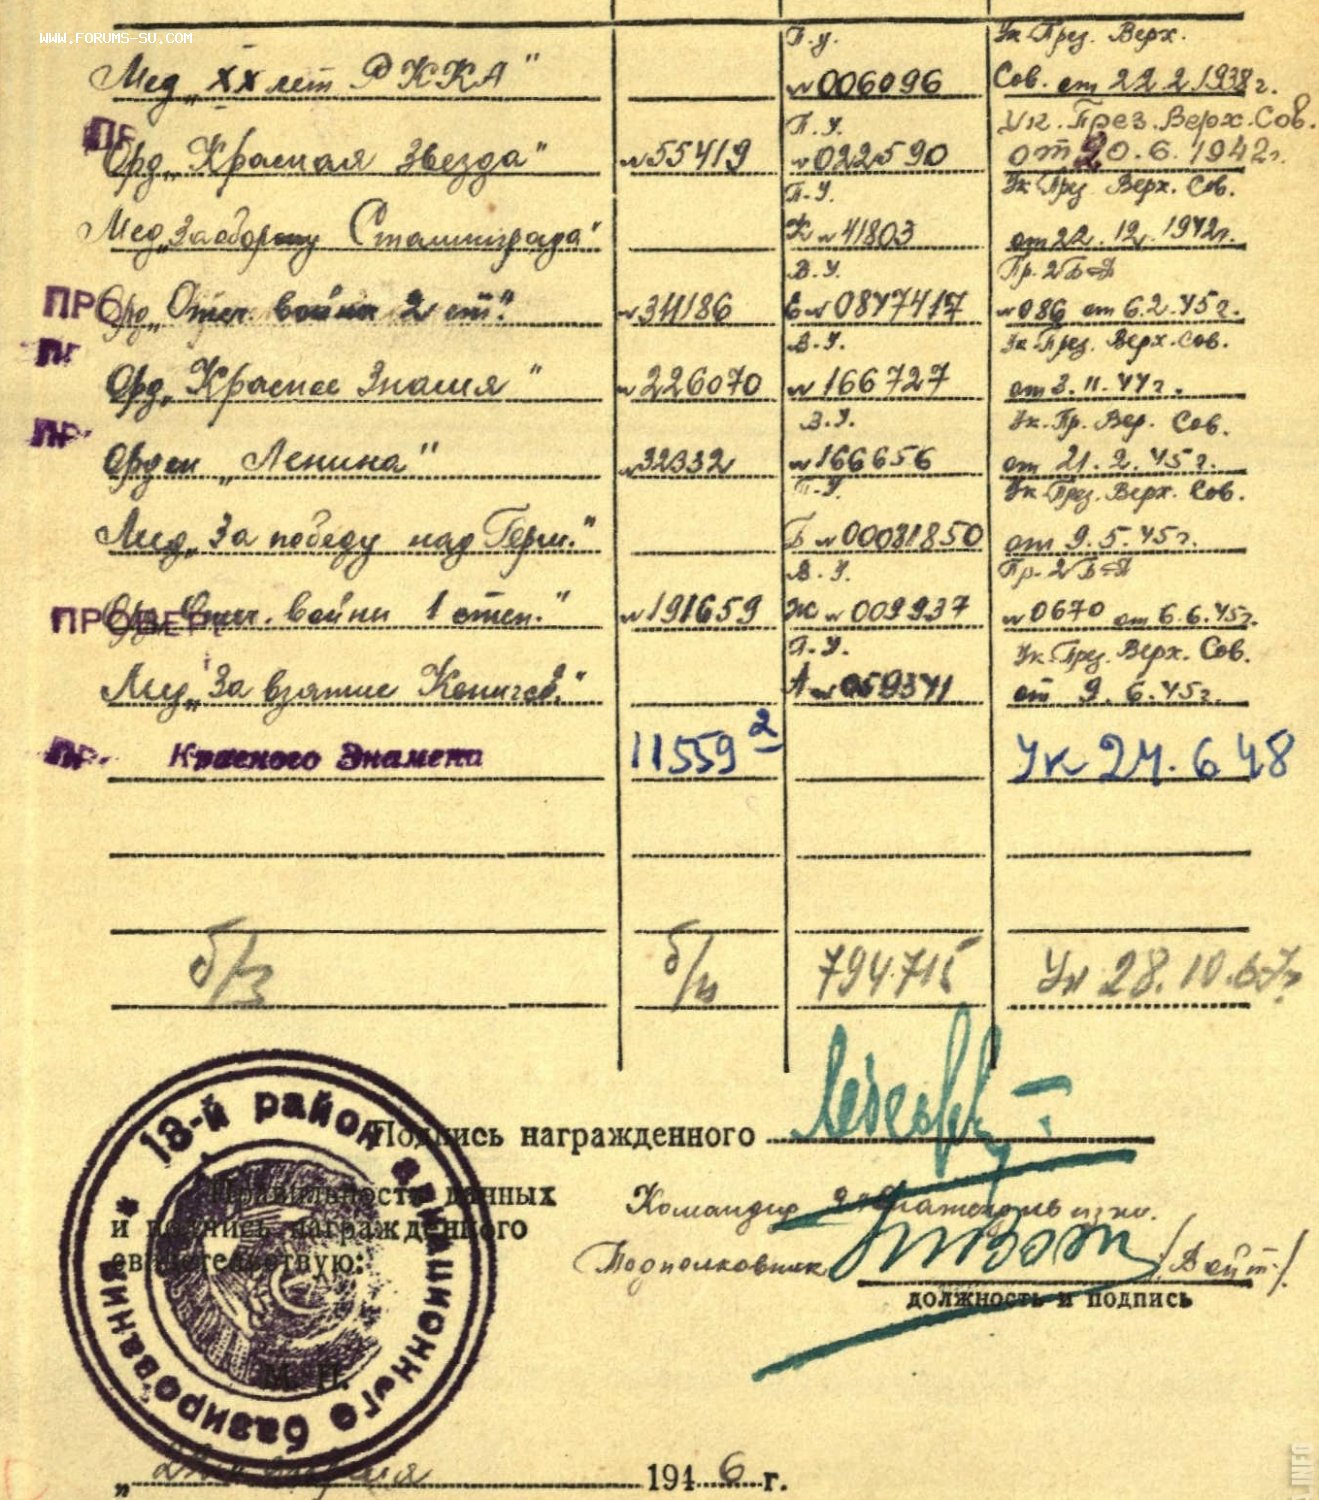 WWW.FORUMS-SU.COM
П.у. Ук. През. Верх.
Мед. „XX лет РККА" №006096 Сов. от 22.2.1938г.
П.У. Ук. През. Верх. Сов.
ПР Орд. „Красная Звезда" №55419 №022590 от 20.6.1942г.
П.У. Ук. През. Верх. Сов.
Мед. „За оборону Сталинграда" №41803 от 22.12.1942г.
В.У. Пр. 2 БАД
ПРО Орд. „Отеч. война 2 ст." №311186 Е №0847417 №086 от 6.2.45г.
В.У. Ук. През. Верх. Сов.
ПР Орд. „Красное Знамя" №226070 №166727 от 3.11.44г.
В.У. Ук. Пр. Вер. Сов.
ПР Орден „Ленина" №32332 №166656 от 21.2.45г.
П.У. Ук. През. Верх. Сов.
Мед. „За победу над Герм." Б №00081850 от 9.5.45г.
В.У. Пр. 2 БАД
ПРОВЕРЕ Ор. Отеч. войны 1 степ." №191659 Ж №009937 №0670 от 6.6.45г.
П.У. Ук. През. Верх. Сов.
Мед. „За взятие Кенигсб." А №059341 от 9.6.45г.
ПР Красного Знамени 11559 2 Ук 24.6 48
б/з б/н 794715 Ук 28.10.67г
Подпись награжденного
Правильность данных
и подпись награжденного
свидетельствую:
Командир
Подполковник /Войт/
должность и подпись
18-й район авиационного базирования
М. П.
„22" 1946 г.
A.INFO